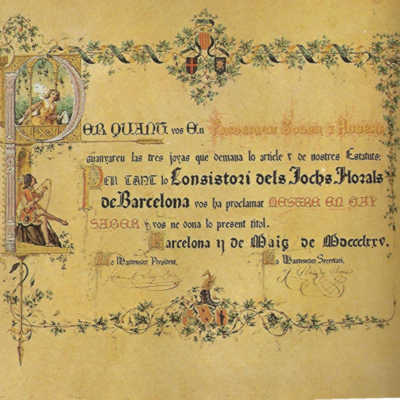 PER QUANT vos En Frederich Soler y Hubert
guanyareu las tres joyas que demana lo article V de nostres Estatuts:
PER TANT lo Consistori dels Jochs Florals
de Barcelona vos ha proclamat MESTRE EN GAY
SABER y vos ne dona lo present titol.
Barcelona 11 de Maig de MDCCCLXXV.
Lo Mantenedor President, Lo Mantenedor Secretari,